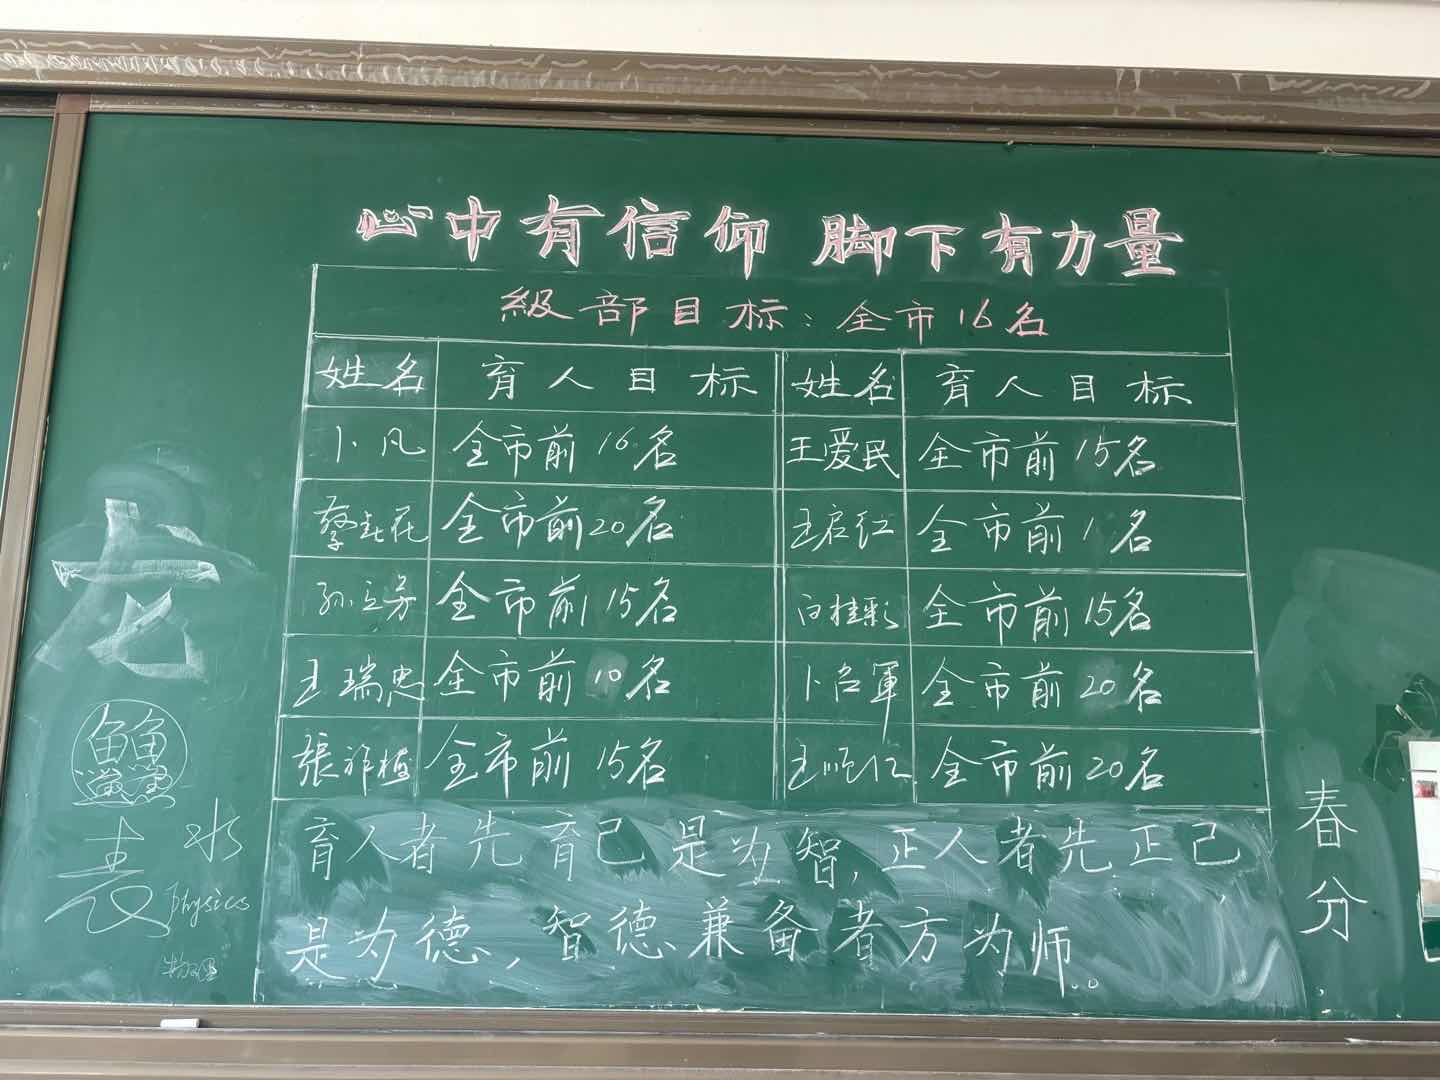 心中有信仰 脚下有力量
級部目标：全市16名
姓名 育人目标 姓名 育人目标
卜凡 全市前16名 王爱民 全市前15名
蔡春花 全市前20名 王启红 全市前1名
孙立芳 全市前15名 白桂彩 全市前15名
王瑞忠 全市前10名 卜启軍 全市前20名
張 全市前15名 王顺仁 全市前20名
育人者先育己是为智，正人者先正己，
是为德，智德兼备者方为师。
春分
水
Physics
物理